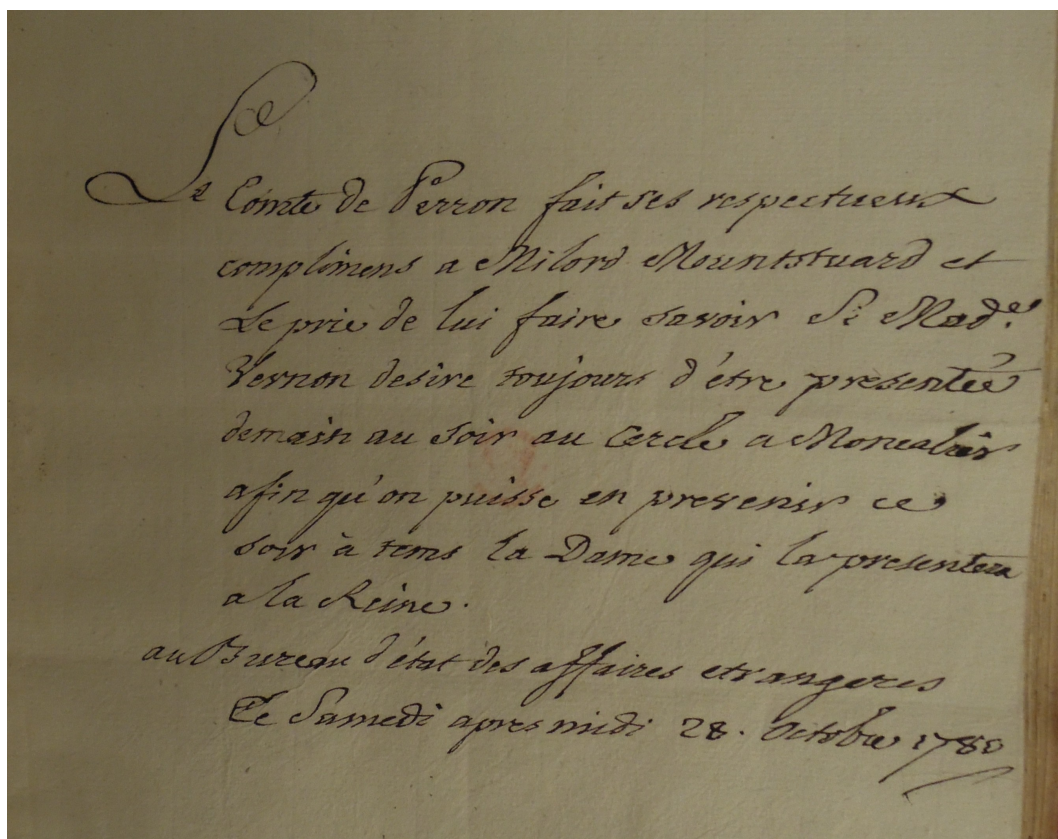 Le Comte de Perron fait ses respectueux
complimens a Milord Mountstuard et
Le prie de lui faire savoir Si Mad.e
Vernon desire toujours d'étre presentée
demain au soir au Cercle a Moncalier
afin qu'on puisse en prevenir ce
soir à tems la Dame qui la presentera
a la Reine.
au Bureau d'état des affaires etrangeres
Ce Samedi apres midi 28. Octobre 1780